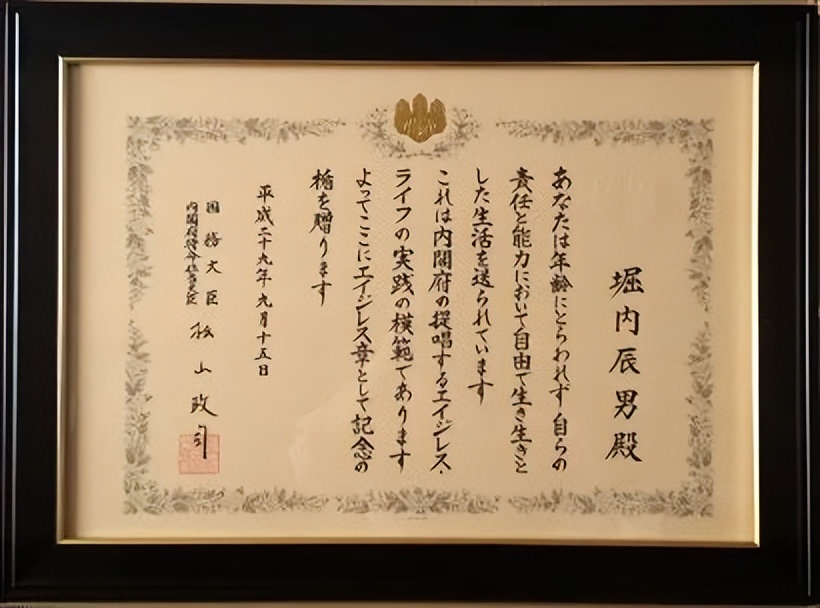 堀内辰男殿
あなたは年齢にとらわれず自らの
責任と能力において自由で生き生きと
した生活を送られています
これは内閣府の提唱するエイジレス・
ライフの実践の模範であります
よってここにエイジレス章として記念の
楯を贈ります
平成二十九年九月十五日
国務大臣
内閣府特命担当大臣
松山政司